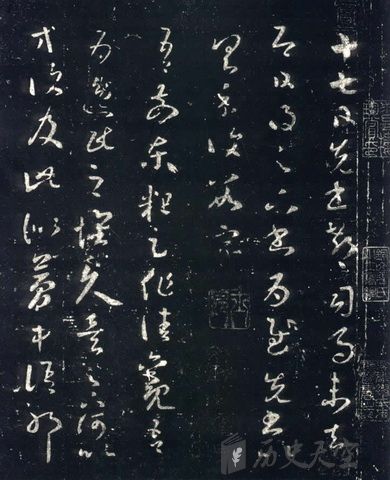 十七日先書郗司馬未去
即日得足下書為慰先書以
具示復數字
吾前東粗足作佳觀吾
為逸民之懷久矣足下何以
等復及此似夢中語耶
历史天空